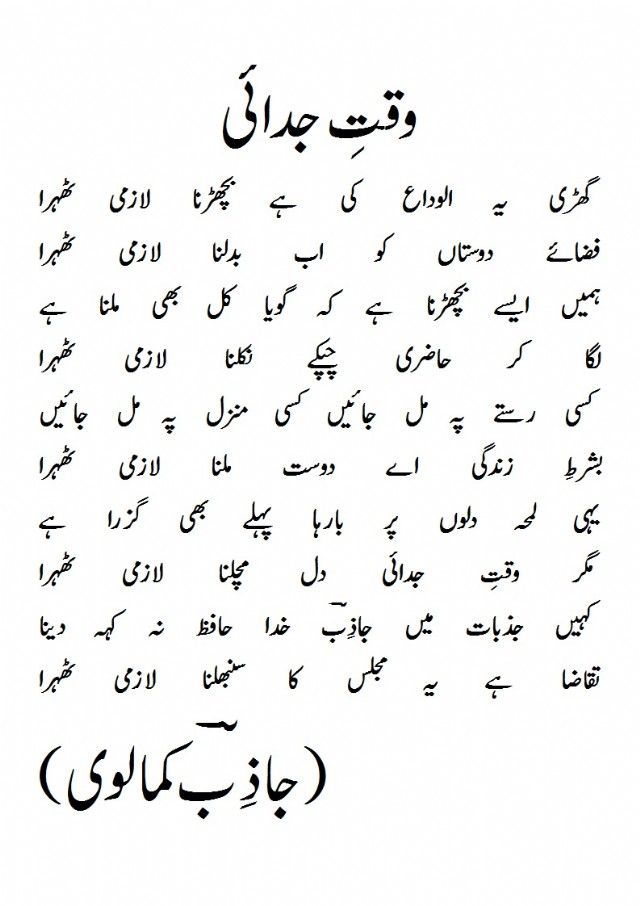 وقتِ جدائی
گھڑی یہ الوداع کی ہے بچھڑنا لازمی ٹھہرا
فضائے دوستاں کو اب بدلنا لازمی ٹھہرا
ہمیں ایسے بچھڑنا ہے کہ گویا کل بھی ملنا ہے
لگا کر حاضری چپکے نکلنا لازمی ٹھہرا
کسی رستے پہ مل جائیں کسی منزل پہ مل جائیں
بشرطِ زندگی اے دوست ملنا لازمی ٹھہرا
یہی لمحہ دلوں پر بارہا پہلے بھی گزرا ہے
مگر وقتِ جدائی دل مچلنا لازمی ٹھہرا
کہیں جذبات میں جاذِبؔ خدا حافظ نہ کہہ دینا
تقاضا ہے یہ مجلس کا سنبھلنا لازمی ٹھہرا
(جاذِبؔ کمالوی)